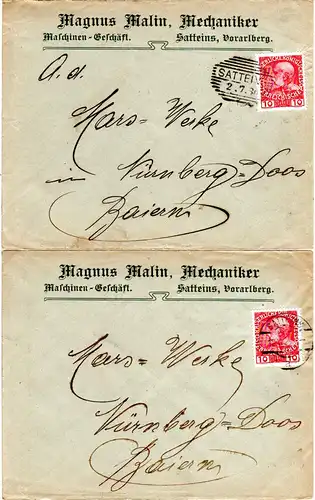 Magnus Malin, Mechaniker
Maschinen-Geschäft. Satteins, Vorarlberg.
A. d.
SATTEINS
2.7.
10 10
Mars-Werke
in Nürnberg-Doos
Baiern
Magnus Malin, Mechaniker
Maschinen-Geschäft. Satteins, Vorarlberg.
10 10
Mars-Werke
Nürnberg-Doos
Baiern